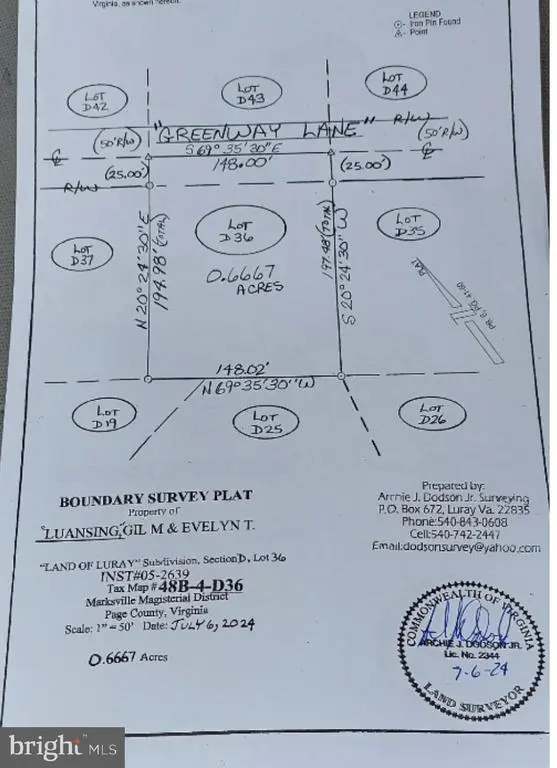 Virginia, as shown hereon.
LEGEND
Iron Pin Found
Point
LOT D42
LOT D43
LOT D44
"GREENWAY LANE"
R/W
(50' R/W)
(50' R/W)
S 69° 35' 30" E
148.00'
(25.00')
(25.00')
R/W
LOT D37
N 20° 24' 30" E
194.98' (TOTAL)
LOT D36
0.6667
ACRES
197.48' (TOTAL)
S 20° 24' 30" W
LOT D35
PLAT
148.02'
N 69° 35' 30" W
LOT D19
LOT D25
LOT D26
BOUNDARY SURVEY PLAT
Property of
LUANSING, GIL M & EVELYN T.
"LAND OF LURAY" Subdivision, Section D, Lot 36
INST#05-2639
Tax Map # 48B-4-D36
Marksville Magisterial District
Page County, Virginia
Scale: 1" = 50' Date: JULY 6, 2024
0.6667 Acres
Prepared by:
Archie J. Dodson Jr. Surveying
P.O. Box 672, Luray Va. 22835
Phone:540-843-0608
Cell:540-742-2447
Email:dodsonsurvey@yahoo.com
COMMONWEALTH OF VIRGINIA
ARCHIE J. DODSON JR.
Lic. No. 2344
7-6-24
LAND SURVEYOR
bright MLS